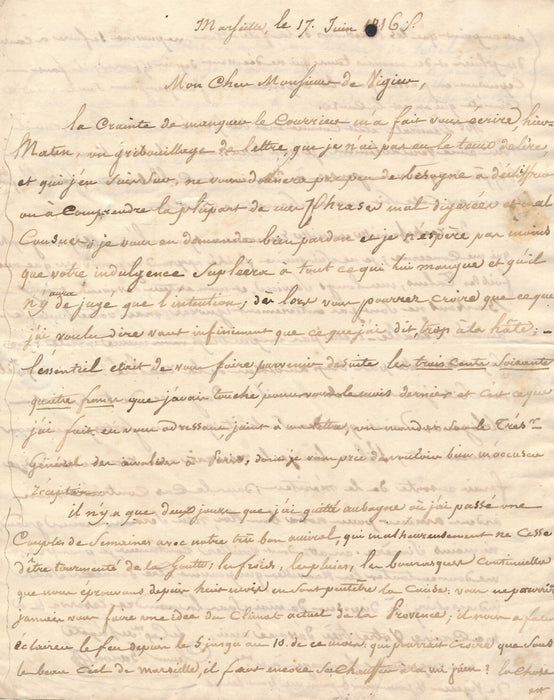 Marseille, le 17. Juin 1816
Mon Cher Monsieur de Vigier,
la Crainte de manquer le Courrier m'a fait vous écrire, hier
Matin, un gribouillage de lettre, que je n'ai pas eu le tems de lire,
et qui j'en suis sur, ne vous donnera pas peu de besogne à déchiffrer
ou à Comprendre la plupart de mes Phrases mal digerées et mal
Cousues; je vous en demande bien pardon et je n'espère pas moins
que votre indulgence supléera à tout ce qui lui manque et qu'il
n'y aura de jugé que l'intention; dès lors vous pourrez croire que ce que
j'ai voulu dire vaut infiniment que ce que j'ai dit, trop à la hâte;
l'éssentiel etait de vous faire parvenir de suite les trois cents soixante
quatre francs que j'avais touché pour vous le mois dernier et c'est ce que
j'ai fait en vous adressant joint à ma lettre, un mandat sur le Trésr.
Général des invalides à Paris, dont je vous prie de vouloir bien m'accuser
réception
il n'y a que deux jours que j'ai quitté aubagne où j'ai passé une
Couples de Semaines avec notre très bon amiral, qui malheureusement ne Cesse
d'être tourmenté de la Goutte; les froids, les pluies, les bourasques Continuelles
que nous éprouvons depuis huit mois en sont peutêtre la Cause, vous ne pourriés
jamais vous faire une idée du Climat actuel de la Provence, il nous a fallu
éclairer le feu depuis le 5 jusqu'au 10 de ce mois, qui pourrait croire que sous
le beau Ciel de marseille, il faut encore se Chauffer à la mi juin? la Chose